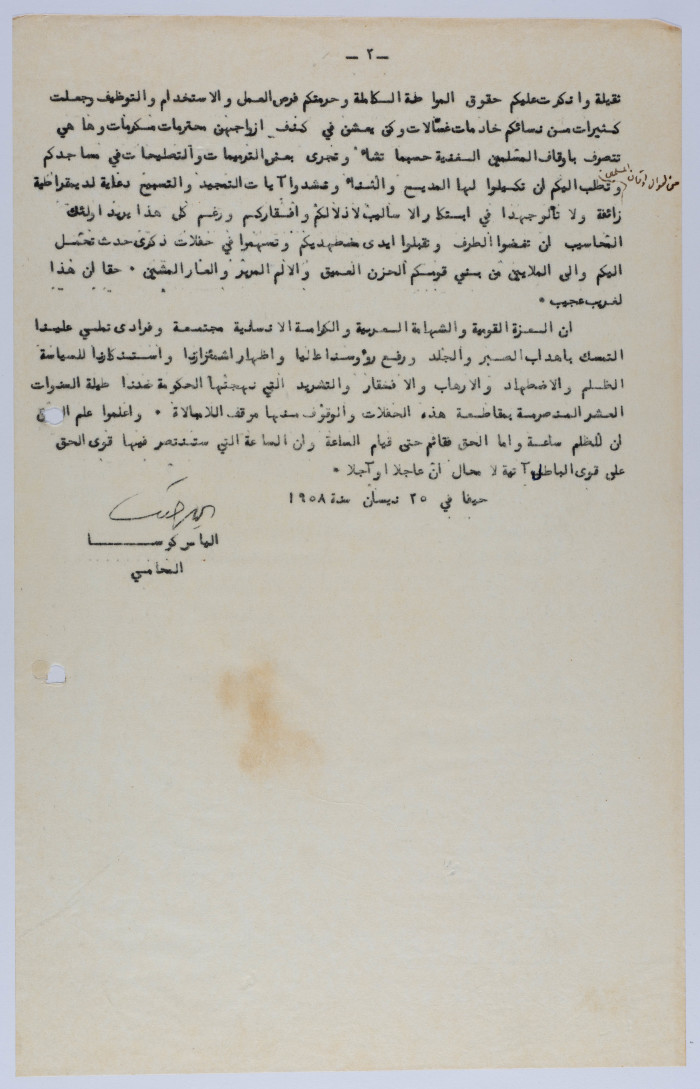 — ٢ —
ثقيلة وانكرت عليكم حقوق المواطنة الكاملة وحرمتكم فرص العمل والاستخدام والتوظيف وجعلت
كثيرات من نسائكم خادمات غسالات وكن يعشن في كنف ازواجهن محترمات مكرمات وها هي
تتصرف باوقاف المسلمين الغنية حسبما تشاء وتجرى بعض الترميمات والتصليحات في مساجدكم
من اموال اوقاف المسلمين
وتطلب اليكم ان تكيلوا لها المديح والثناء وتنشدوا آيات التمجيد والتسبيح دعاية لديمقراطية
زائفة ولا تألو جهدا في ابتكار الاساليب لاذلالكم وافقاركم ورغم كل هذا يريد اولئك
المناسيب ان تغضوا الطرف وتقبلوا ايدى مضطهديكم وتسهموا في حفلات ذكرى حدث تحمل
اليكم والى الملايين من بني قومكم الحزن العميق والالم المرير والعار المشين ٠ حقا ان هذا
لغريب عجيب ٠
ان العزة القومية والشهامة العربية والكرامة الانسانية مجتمعة وفرادى تملي علينا
التمسك باهداب الصبر والجلد ورفع رؤوسنا عاليا واظهار اشمئزازنا واستنكارنا للسياسة
الظلم والاضطهاد والارهاب والافقار والتشريد التي نهجتها الحكومة ضدنا طيلة السنوات
العشر المنصرمة بمقاطعة هذه الحفلات والوقوف منها موقف اللامبالاة ٠ واعلموا علم
ان للظلم ساعة واما الحق فقائم حتى قيام الساعة وان الساعة التي ستنتصر فيها قوى الحق
على قوى الباطل آتية لا محال ان عاجلا او آجلا ٠
حيفا في ٢٥ نيسان سنة ١٩٥٨
الياس كوسا
المحامي